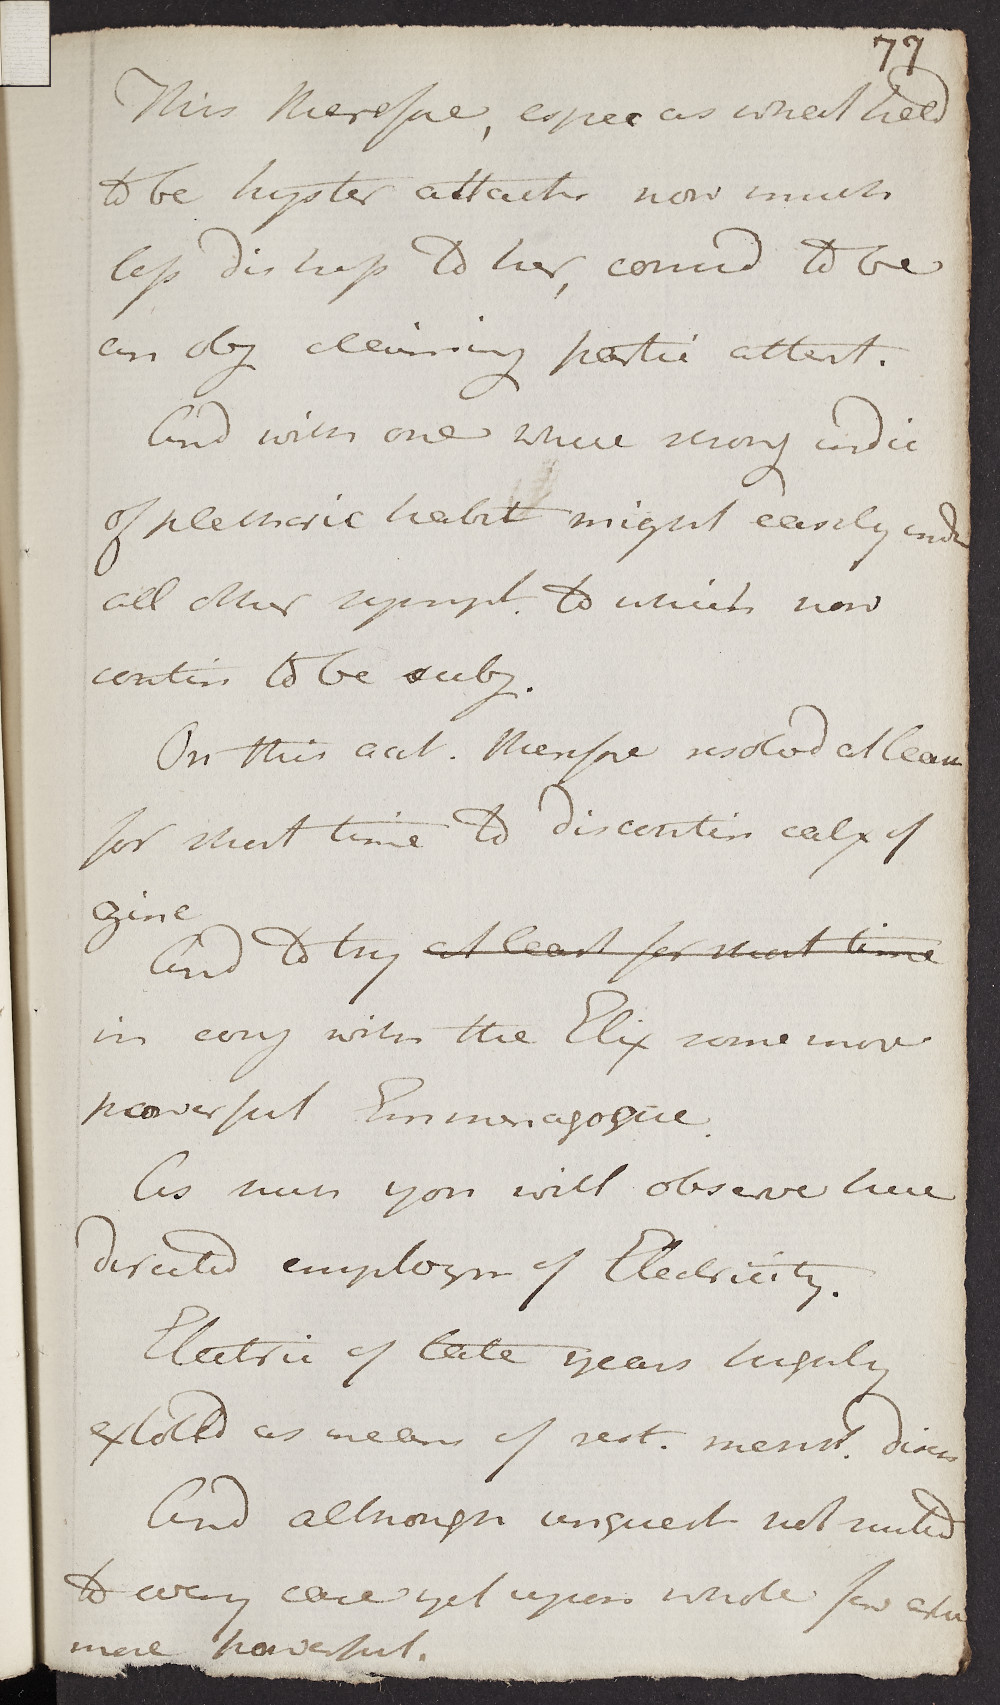 77
This therefore, espec as what held
to be hyster attacks now much
less distress to her, consid to be
an obj claiming partic attent.
And with one where strong indic
of plethoric habit might easily induce
all other sympt. to which now
contin to be subj.
On this acct. therefore resolved at least
for short time to discontin calx of
zinc
And to try at least for short time
in conj with the Elix some more
powerful Emmenagogue.
As such you will observe here
directed employm of Electricity.
Electric of late years highly
extolld as means of rest. menst. disch
And although unquest not suited
to every case yet upon whole few
more powerful.